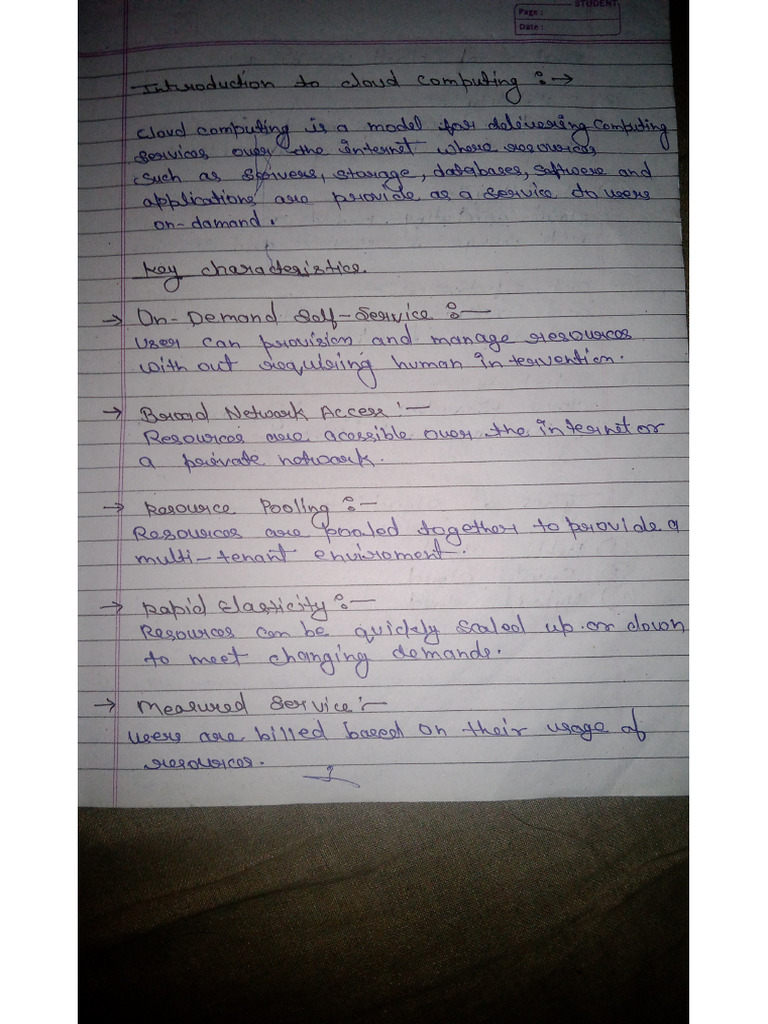 STUDENT
Page :
Date :
Introduction to cloud computing :->
cloud computing is a model for delivering computing
services over the internet where resources
such as servers, storage, databases, software and
applications are provide as a service to users
on-damand.
Key characteristics
-> On-Demand Self-Service :-
User can provision and manage resources
with out requiring human intervention.
-> Broad Network Access :-
Resources are acessible over the internet or
a private network.
-> Resource Pooling :-
Resources are pooled together to provide a
multi-tenant enviroment.
-> Rapid Elasticity :-
Resources can be quickly scaled up or down
to meet changing demands.
-> Measured Service :-
Users are billed based on their usage of
resources.